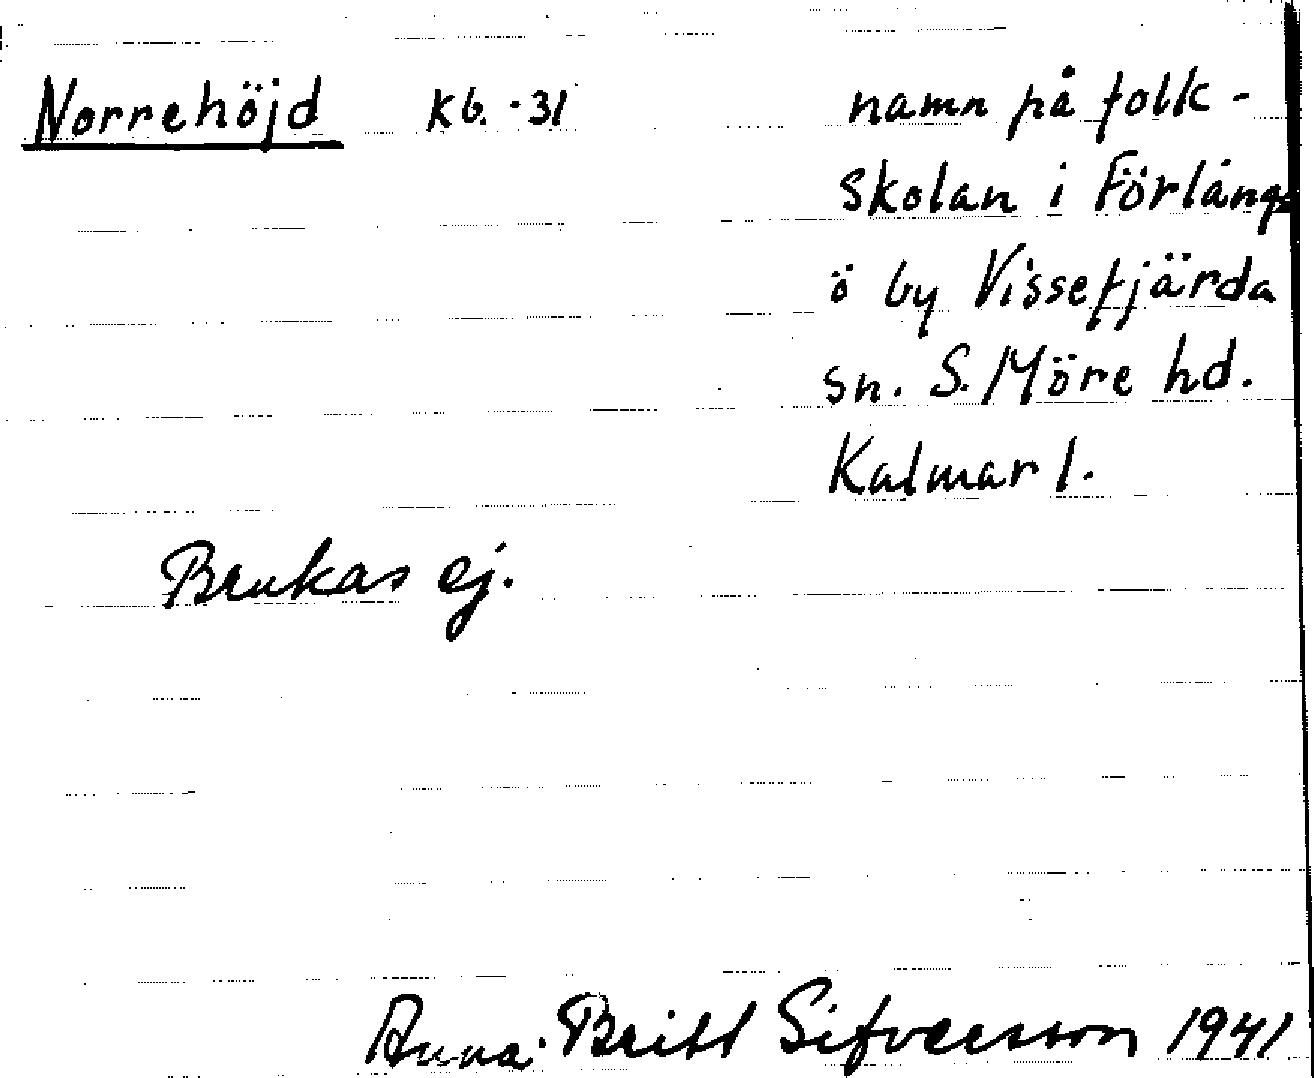 Norrehöjd kb. -31 namn på folk-
skolan i Förlångs-
ö by Vissefjärda
sn. S. Möre hd.
Kalmar l.
Brukas ej.
Anna-Britt Sifversson 1941